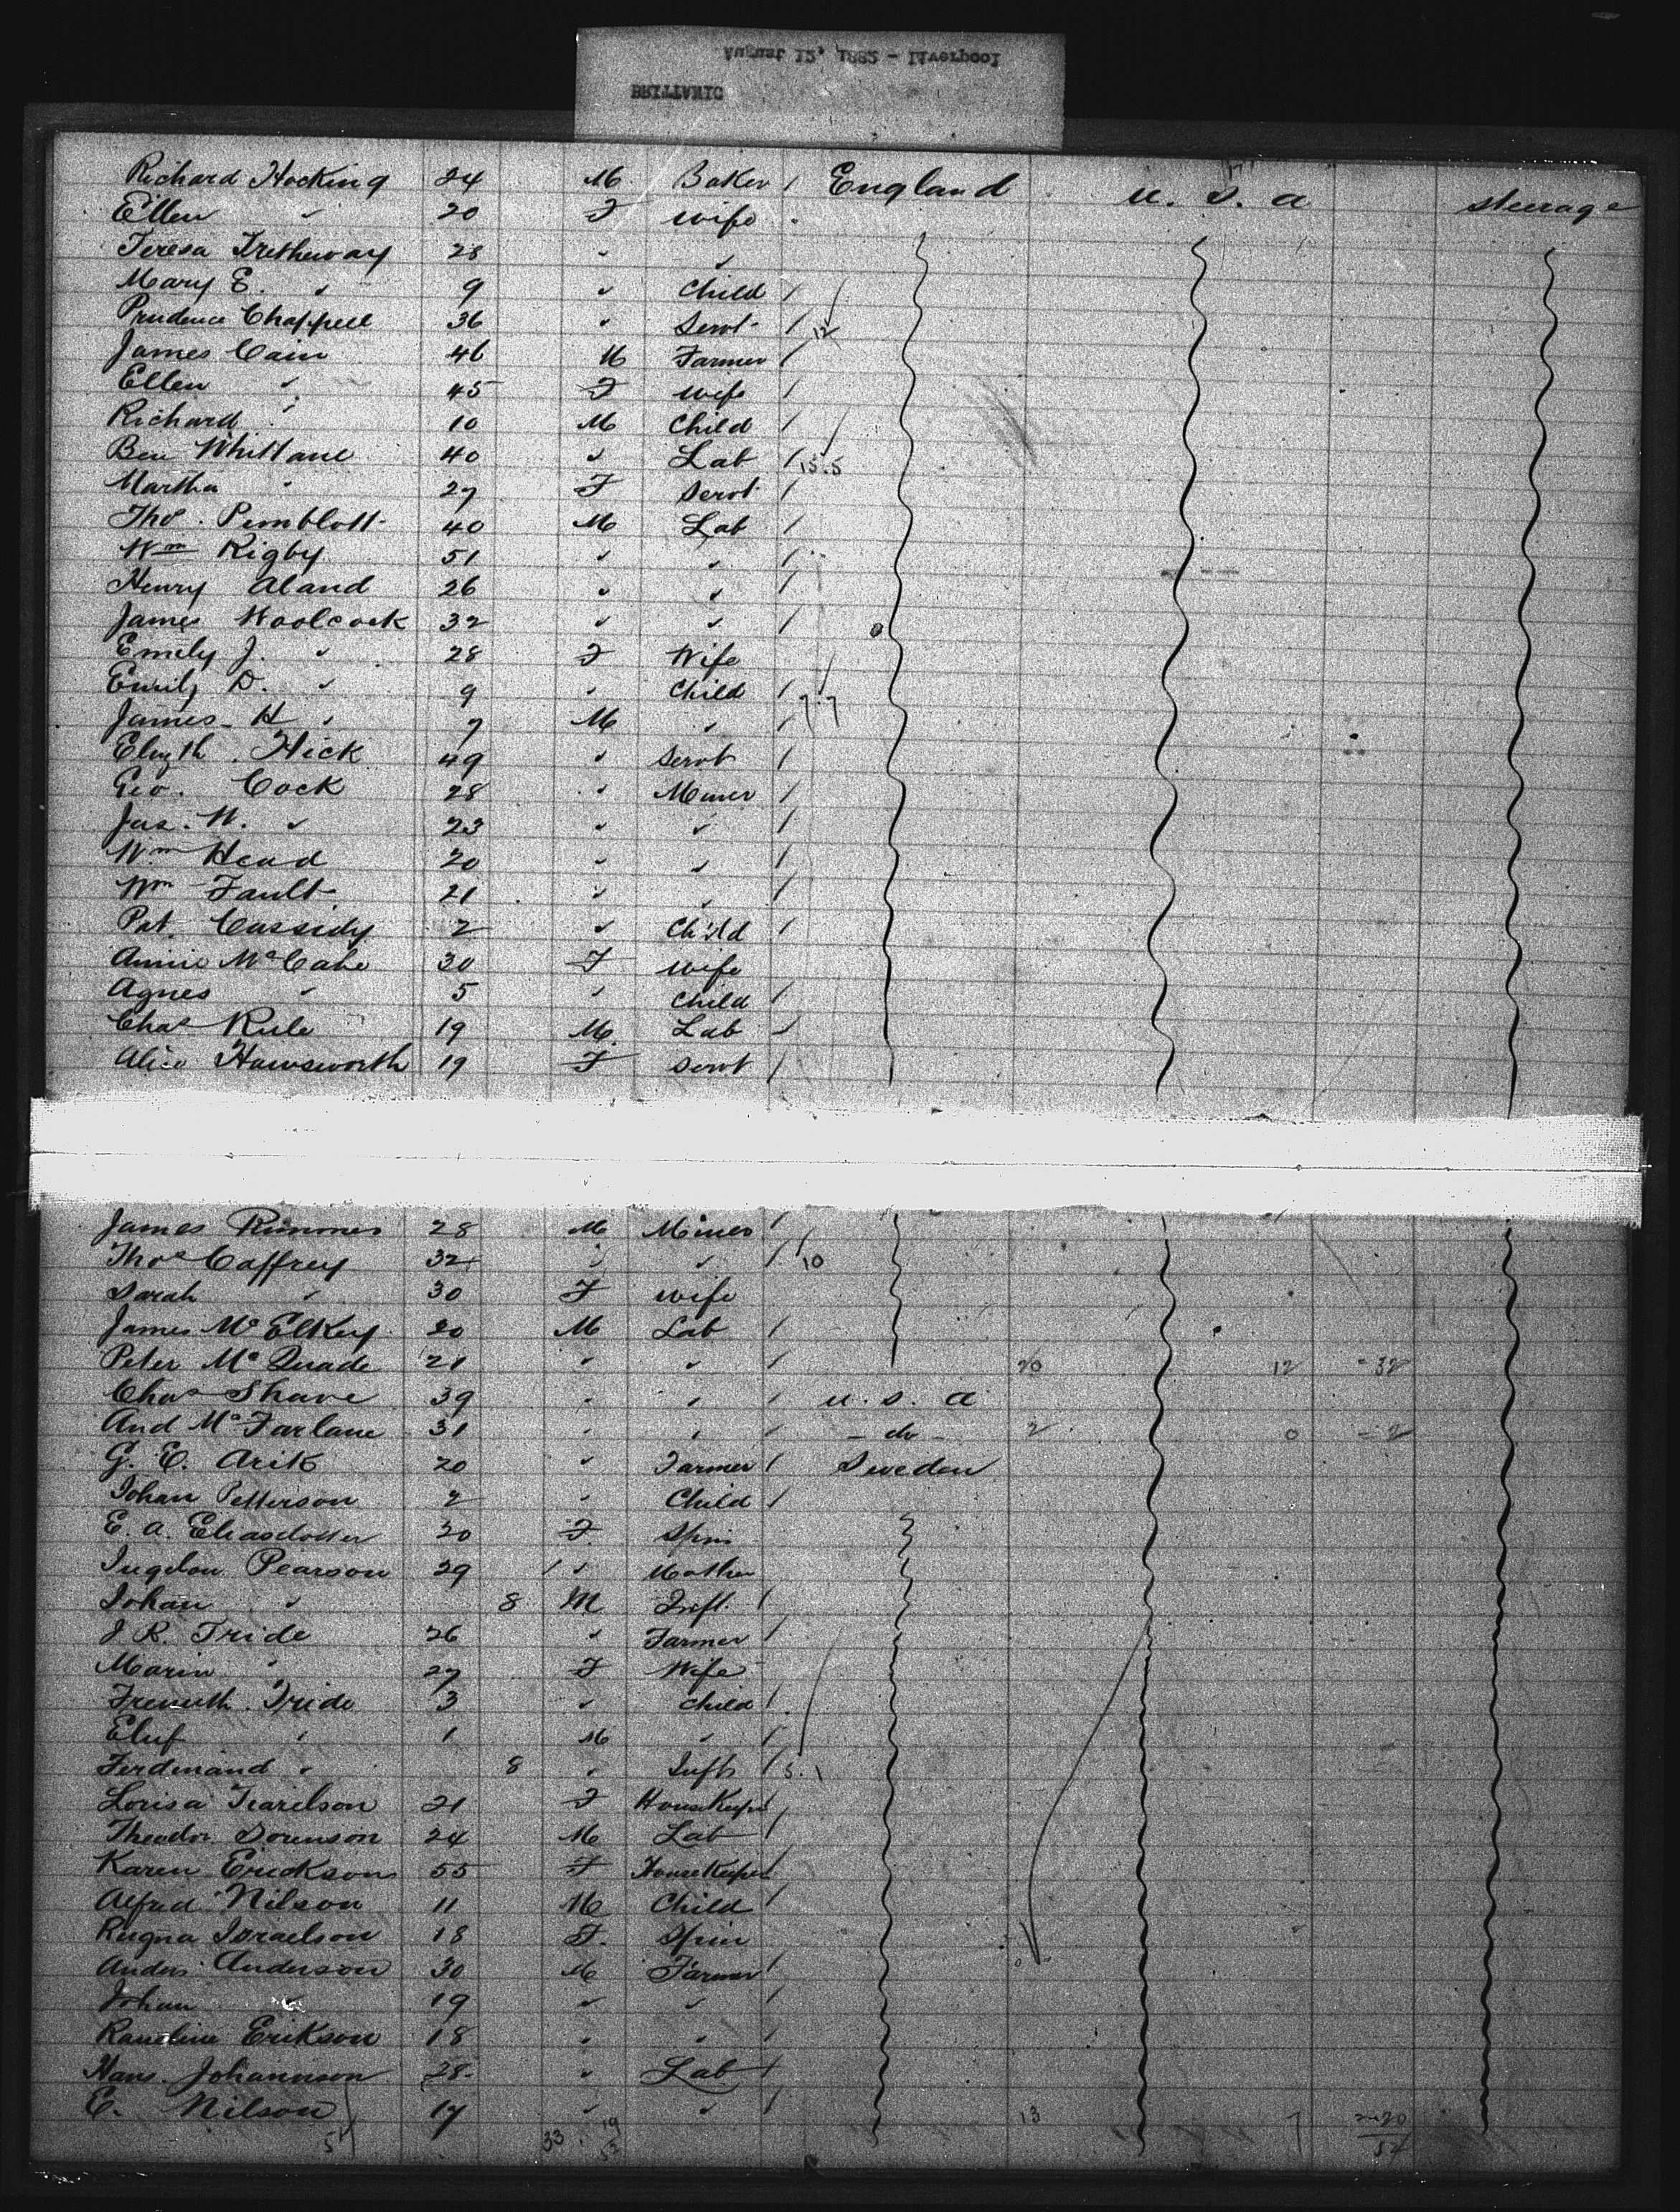 August 12, 1882 - Liverpool
BRITTANIC
Richard Hocking 24 M Baker / England U. S. A Steerage
Ellen " 20 F Wife
Teresa Tretheway 28 " "
Mary E. " 9 " Child /
Prudence Chappell 36 " Servt / 12
James Cain 46 M Farmer /
Ellen " 45 F Wife /
Richard " 10 M Child /
Ben Whittane 40 " Lab / 15.5
Martha " 27 F Servt /
Thos. Pemblott 40 M Lab /
Wm Rigby 51 " " /
Henry Aland 26 " " /
James Woolcock 32 " " /
Emily J. " 28 F Wife
Emily D. " 9 " Child / 7.7
James H " 7 M " /
Elizth. Hick 49 " Servt /
Geo. Cock 28 " Miner /
Jas. W. " 23 " " /
Wm Head 20 " " /
Wm Fault 21 " " /
Pat. Cassidy 2 " Child /
Annie McCabe 30 F Wife
Agnes " 5 " Child /
Chas Rule 19 M. Lab /
Alice Hawsworth 19 F Servt /
James Rimmer 28 M Miner /
Thos Caffrey 32 " " / 10
Sarah " 30 F Wife
James McElkey 20 M Lab /
Peter McQuade 21 " " / 20 12 - 32
Chas Shave 39 " " / U. S. A
And McFarlane 31 " " / - do - 2 0 - 2
G. E. Arik 20 " Farmer / Sweden
Johan Petterson 2 " Child /
E. A. Eliasdotter 20 F. Spin
Pearson 29 / " Mother
Johan " 8 M Inft. /
J R. Tride 26 " Farmer /
Marin " 27 F Wife
Tride 3 " Child /
Eluf " 1 M " /
Ferdinand " 8 " Inft / 5.1
Lovisa 21 F HouseKeeper /
Theodor Sorenson 24 M Lab /
Karen Erickson 55 F HouseKeeper /
Alfred Nilson 11 M Child /
Israelson 18 F. Spin
Anders Anderson 30 M Farmer /
Johan " 19 " " /
Erikson 18 " " /
Hans. Johannson 28 " Lab /
E. Nilson 17 " " / 13 7 20
51 33 19 54